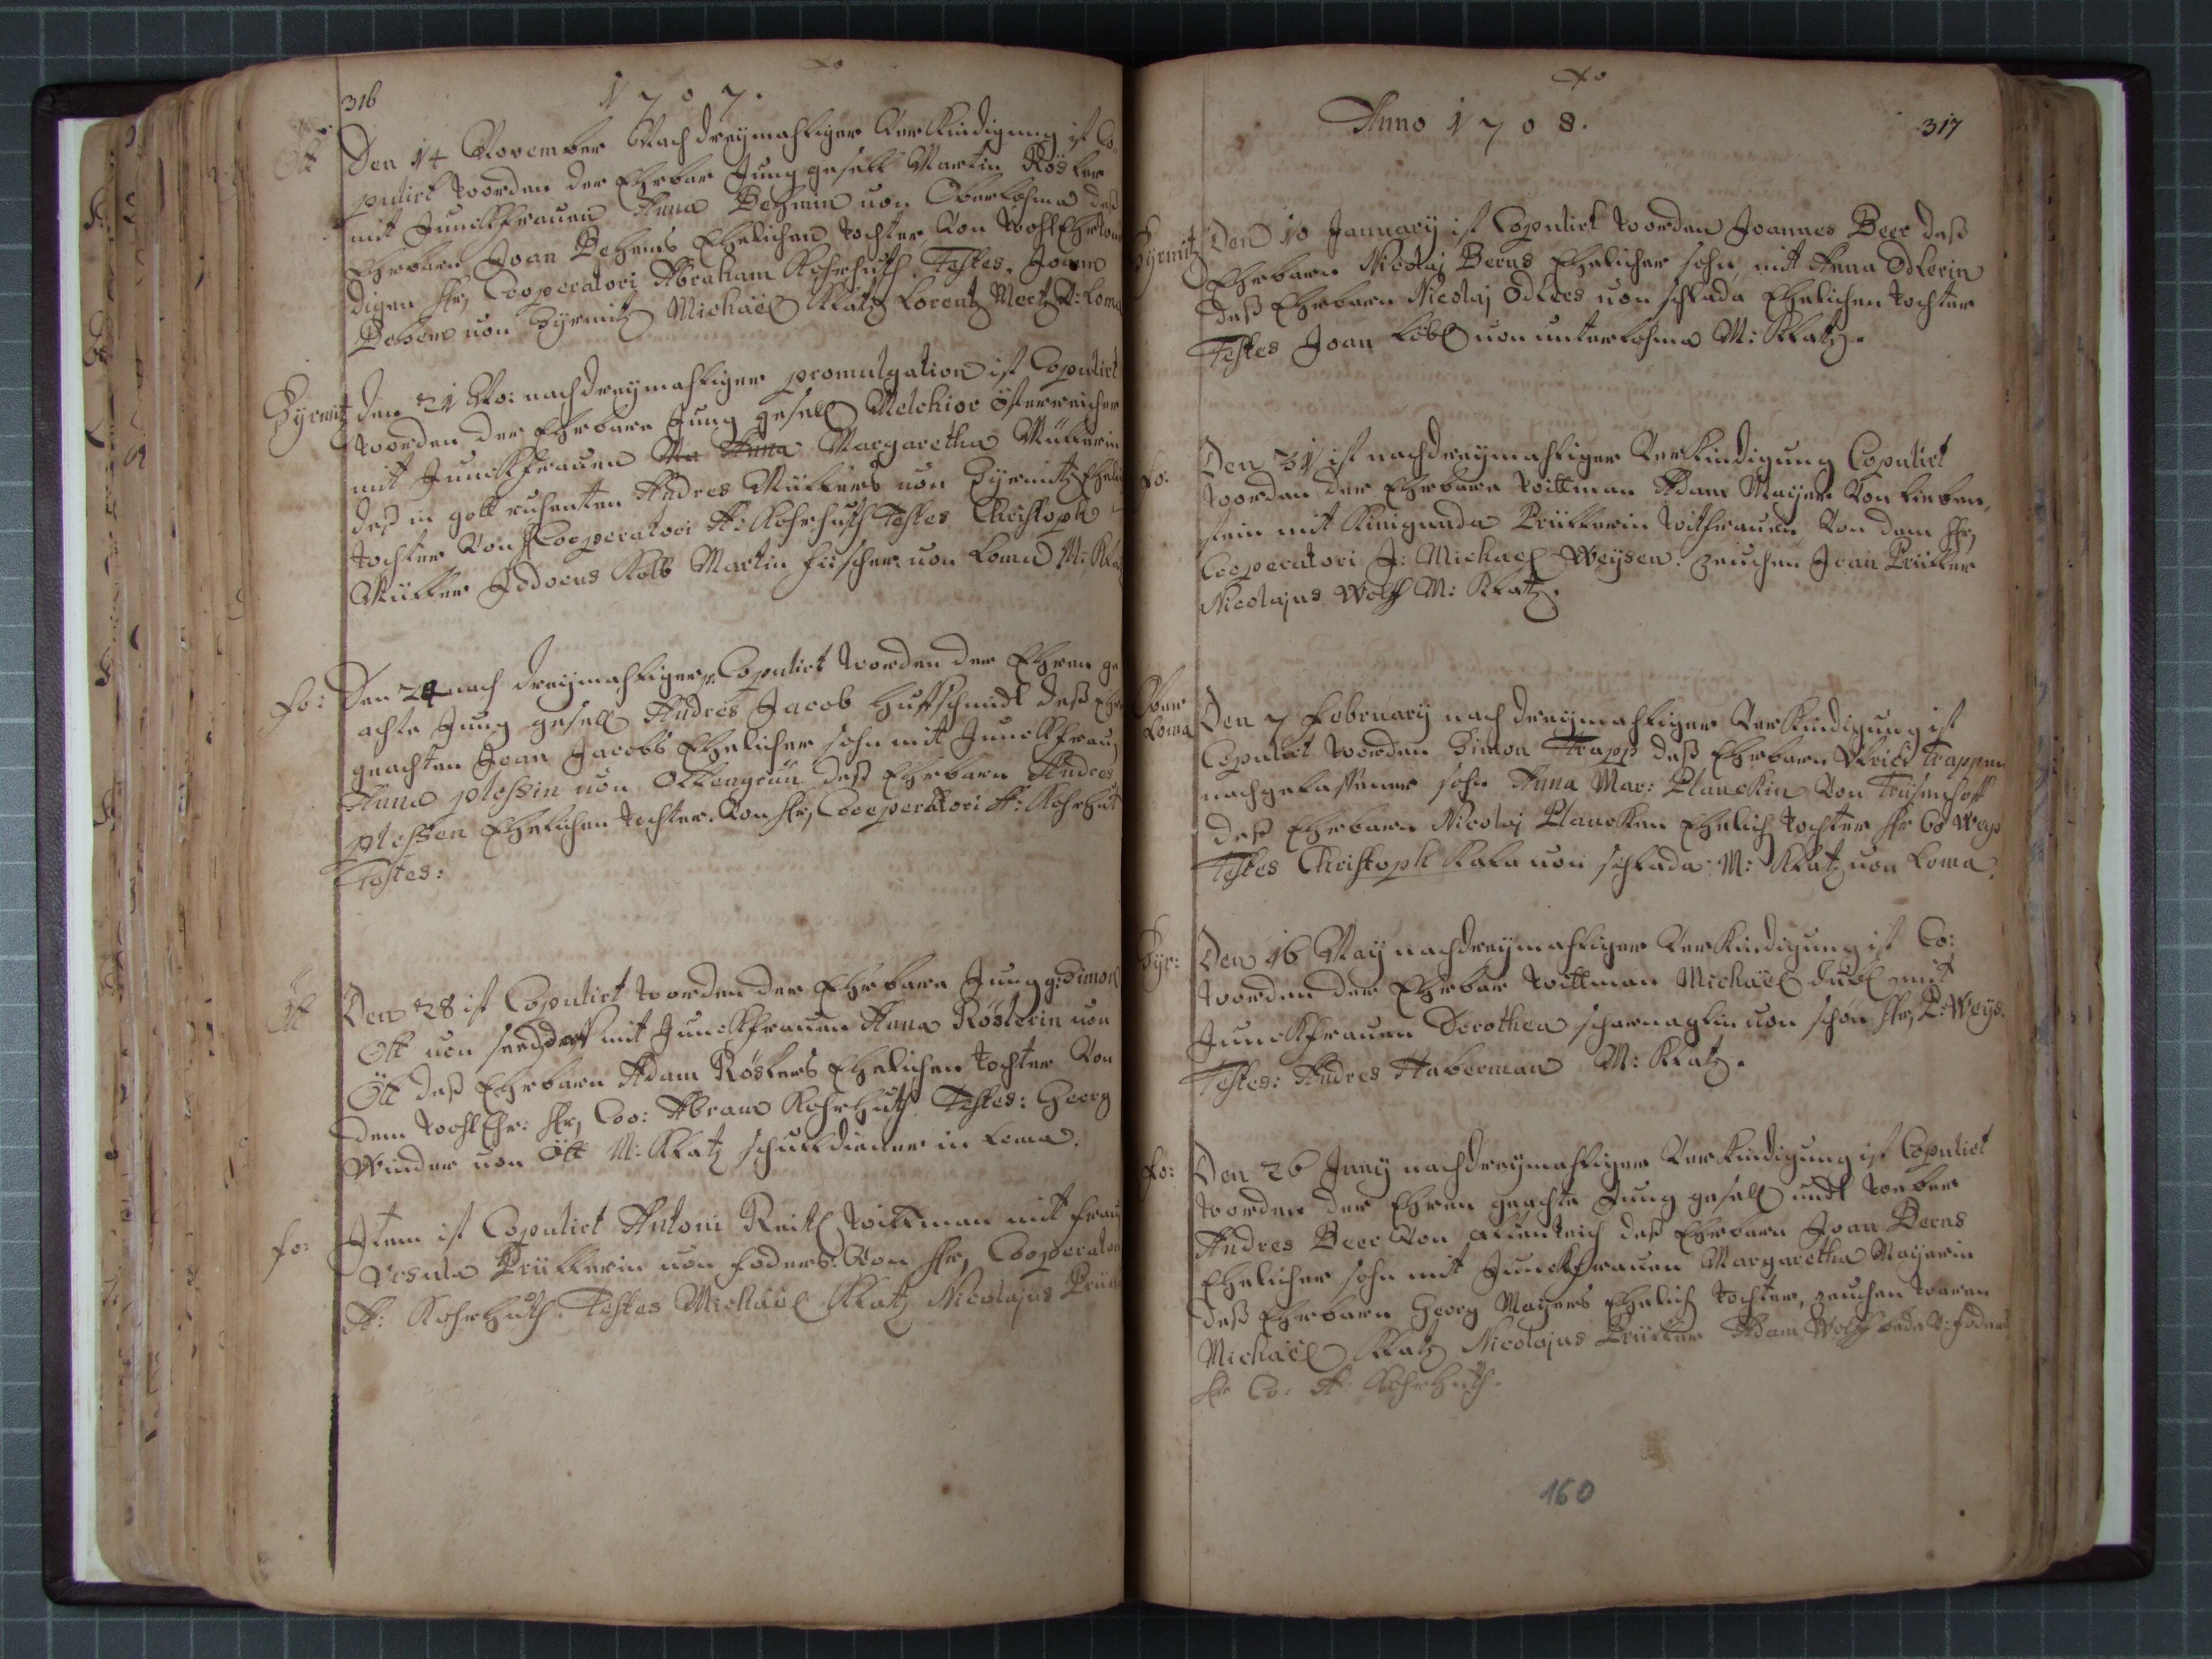 316
1707.
Ött
Den 14 November Nach dreymahliger Verkindigung ist Co-
pulirt worden der Ehrbar Junggesell Martin Rösler
mit Junckfrauen Anna Behmin von Oberlohma deß
Ehrbarn Joan Behems Ehelichen Tochter Von Wohl Ehrwür
digen Hr, Cooperatori Abraham Rohrhuth. Testes. Joann
Behem von Syrmitz Michaël Klatz Lorentz Mertz V: Loma
Syrmitz
den 21 No: nach dreymahliger promulgation ist Copulirt
worden der Ehrbare Jung gesell Melchior Österreicher
mit Junckfrauen Ma Anna Margaretha Müllerin
deß in gott ruhenten Andres Müllers von Syrmitz Eheli
tochter Von H Cooperatori A: Rohrhuth Testes Christoph
Müller Jodocus Kolb Martin fischer von Loma M: Kla
fo:
Den 24 nach dreymahliger Copulirt worden der Ehren ge
achte Jung gesell Andres Jacob Huffschmidt deß Ehr
geachten Joan Jacobs Ehelicher sohn mit Junckfrau
Anna plessin von Ottengrün deß Ehrbarn Andres
plessen Ehelichen Tochter. Von Hr, Cooperatori A: Rohrhut
Testes:
Ött
Den 28 ist Copulirt worden der Ehrbare Jung g: Simon
Ott von mit Junckfrauen Anna Röslerin von
Ött deß Ehrbarn Adam Röslers Ehelichen Tochter Von
dem WohlEhr: Hr, Coo: Abram Rohrhuth. Testes: Georg
Winder von Ött M: Klatz schulldiener in Loma.
fo:
Item ist Copulirt Antoni Reitl Wittman mit frau
Ursula Prüllerin von foders. Von Hr, Cooperatori
A: Rohrhuth. Testes Michaël Klatz Nicolajus Prülle
Anno 1708.
317
Syrmitz
Den 10 January ist Copulirt worden Joannes Beer deß
Ehrbarn Nicolaj Berns Ehelicher sohn, mit Anna Odlerin
deß Ehrbarn Nicolaj Odlers von schlada Ehelichen Tochter
Testes Joan Löbl von unterlohma M: Klatz.
fo:
Den 31 ist nach dreymahliger Verkindigung Copulirt
worden der Ehrbare wittman Adam Mayer Von Lieben-
stein mit Kinigunda Prüllerin witfrauen Von dem Hr,
Cooperatori J: Michael Weysen. zeuchen Joan Prüller
Nicolajus Wolff M: Klatz.
Ober
Loma
Den 7 February nach dreymahliger Verkindigung ist
Copulirt worden Simon Trapp deß Ehrbarn Trappen
nachgelassener sohn Anna Mar: Planckin Von Trisenhoff
deß Ehrbarn Nicolaj Plancken Ehelich Tochter Hr Co Weys
Testes Christoph Kala von schlada M: Klatz von Loma.
Syr:
Den 16 May nach dreymahliger Verkindigung ist Co:
worden der Ehrbar wittman Michaël mit
Junckfrauen Dorothea scharnaglin von schön Hr, P: Weys.
Testes: Andres Haberman M: Klatz.
fo:
Den 26 Juny nach dreymahliger Verkindigung ist Copulirt
worden der Ehren geachte Jung gesell undt weber
Andres Beer Von altenteich deß Ehrbarn Joan Berns
Ehelicher sohn mit Junckfrauen Margaretha Mayerin
deß Ehrbarn Georg Mayers Ehelich Tochter, zeuchen waren
Michaël Klatz Nicolajus Prüller Adam Wolff bede V: foders
Hr Co. A: Rohrhuth.
160